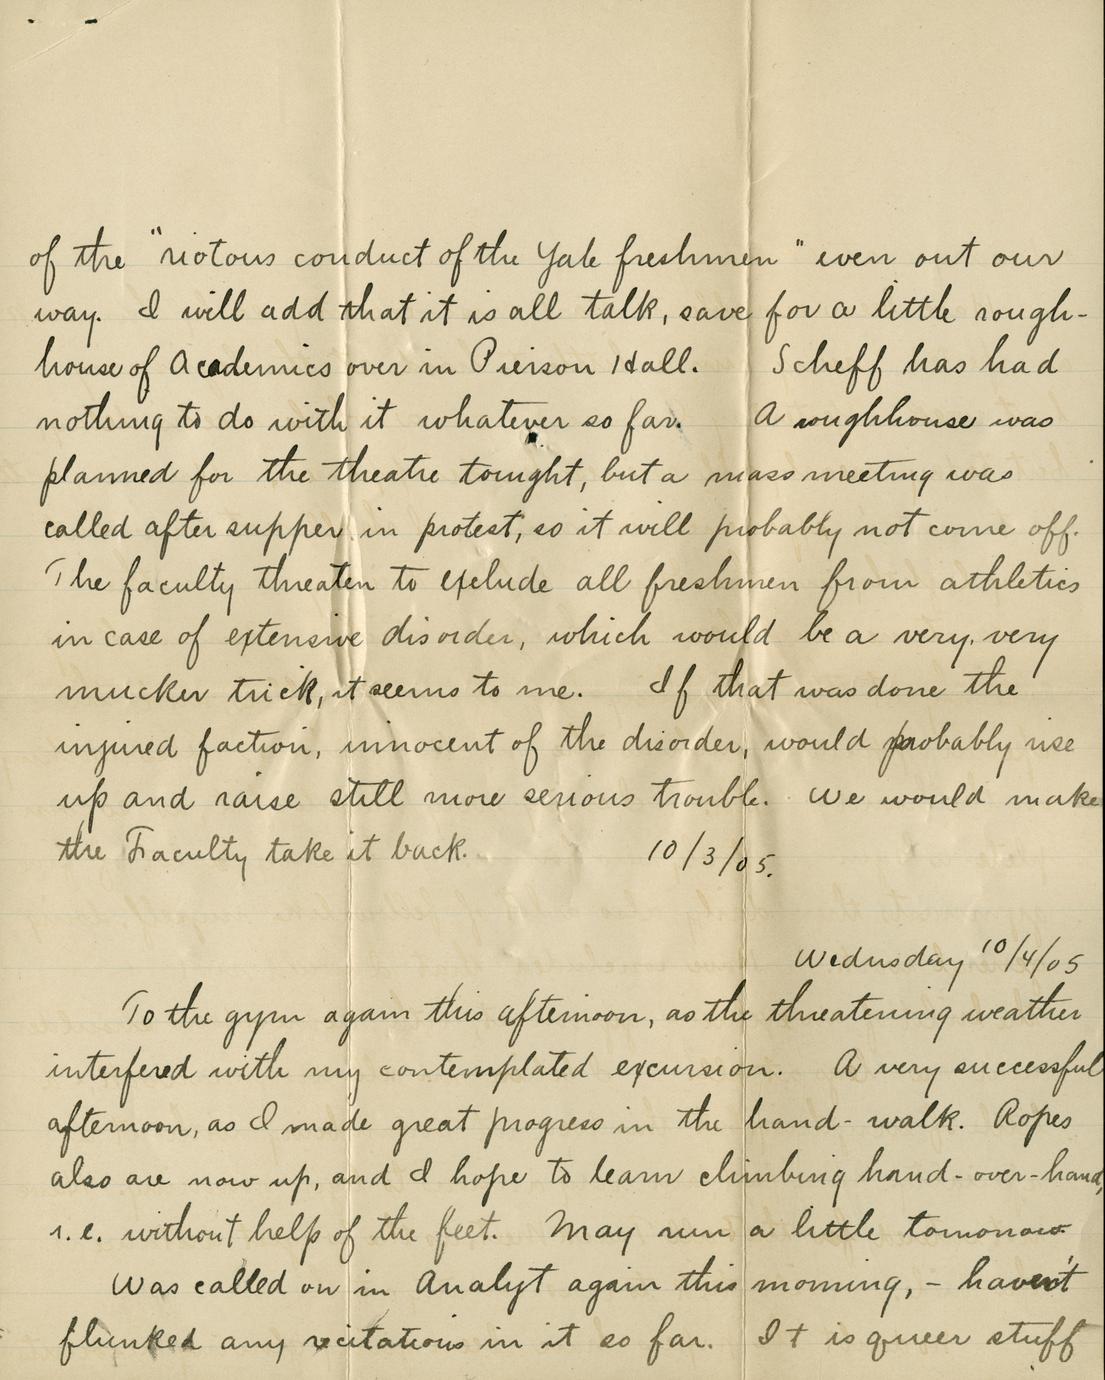 of the "riotous conduct of the Yale freshmen" even out our
way. I will add that it is all talk, save for a little rough-
house of Academics over in Pierson Hall. Scheff has had
nothing to do with it whatever so far. A roughhouse was
planned for the theatre tonight, but a mass meeting was
called after supper in protest, so it will probably not come off.
The faculty threaten to exclude all freshmen from athletics
in case of extensive disorder, which would be a very, very
mucker trick, it seems to me. If that was done the
injured faction, innocent of the disorder, would probably rise
up and raise still more serious trouble. We would make
the Faculty take it back. 10/3/05.
Wednesday 10/4/05
To the gym again this afternoon, as the threatening weather
interfered with my contemplated excursion. A very successful
afternoon, as I made great progress in the hand-walk. Ropes
also are now up, and I hope to learn climbing hand-over-hand,
i.e. without help of the feet. May run a little tomorrow.
Was called on in Analyt again this morning, - haven't
flunked any recitations in it so far. It is queer stuff